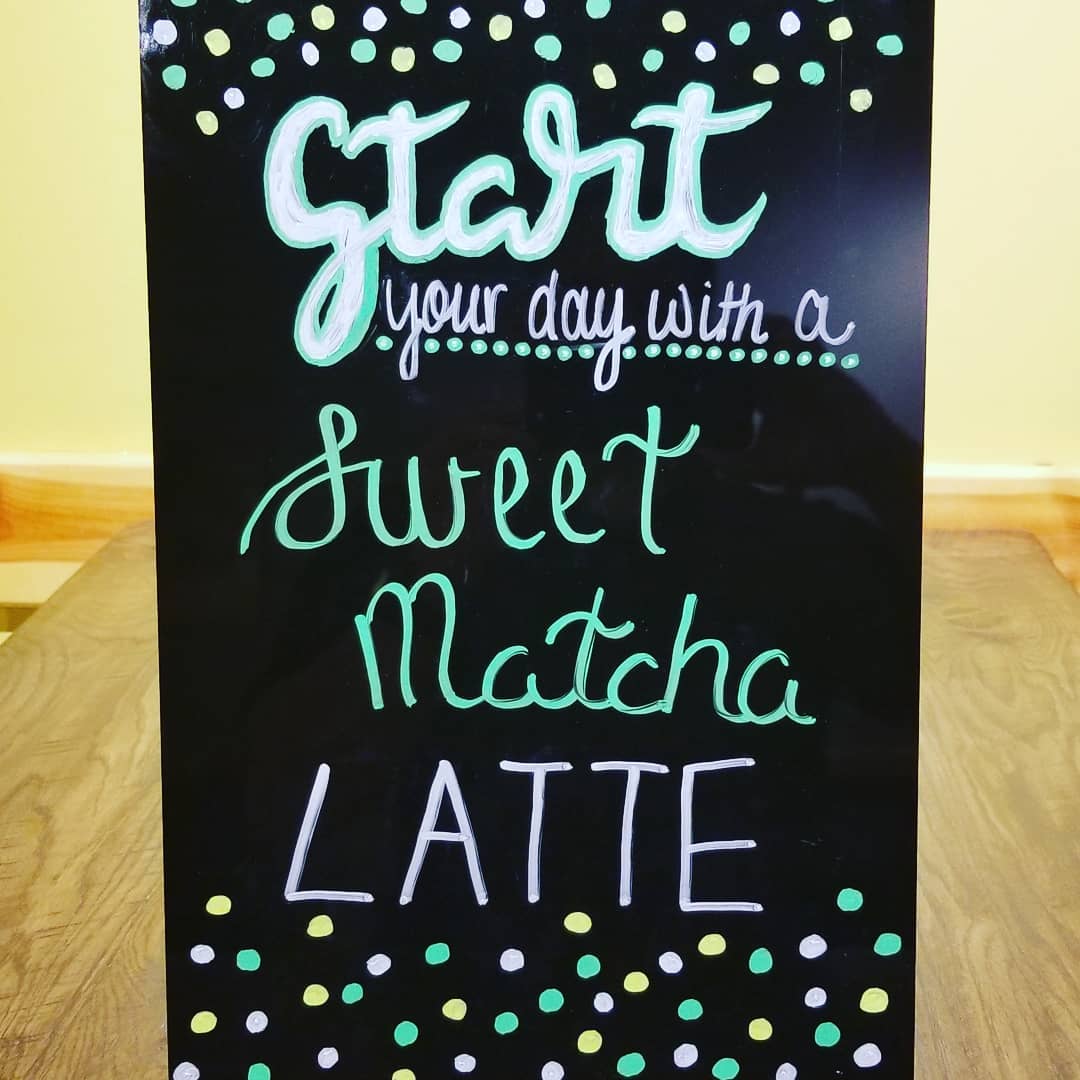 Start
your day with a
Sweet
Matcha
LATTE